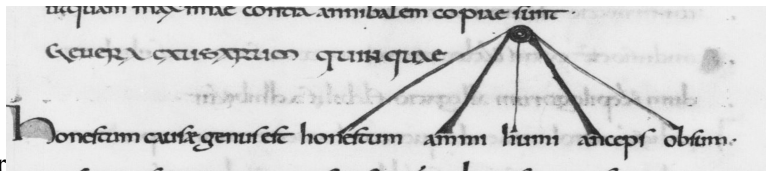 maximae contra annibalem copiae sunt
GENERA CAUSARUM QUINQUAE
honestum causae genus est honestum ammi humi anceps obsum.
r